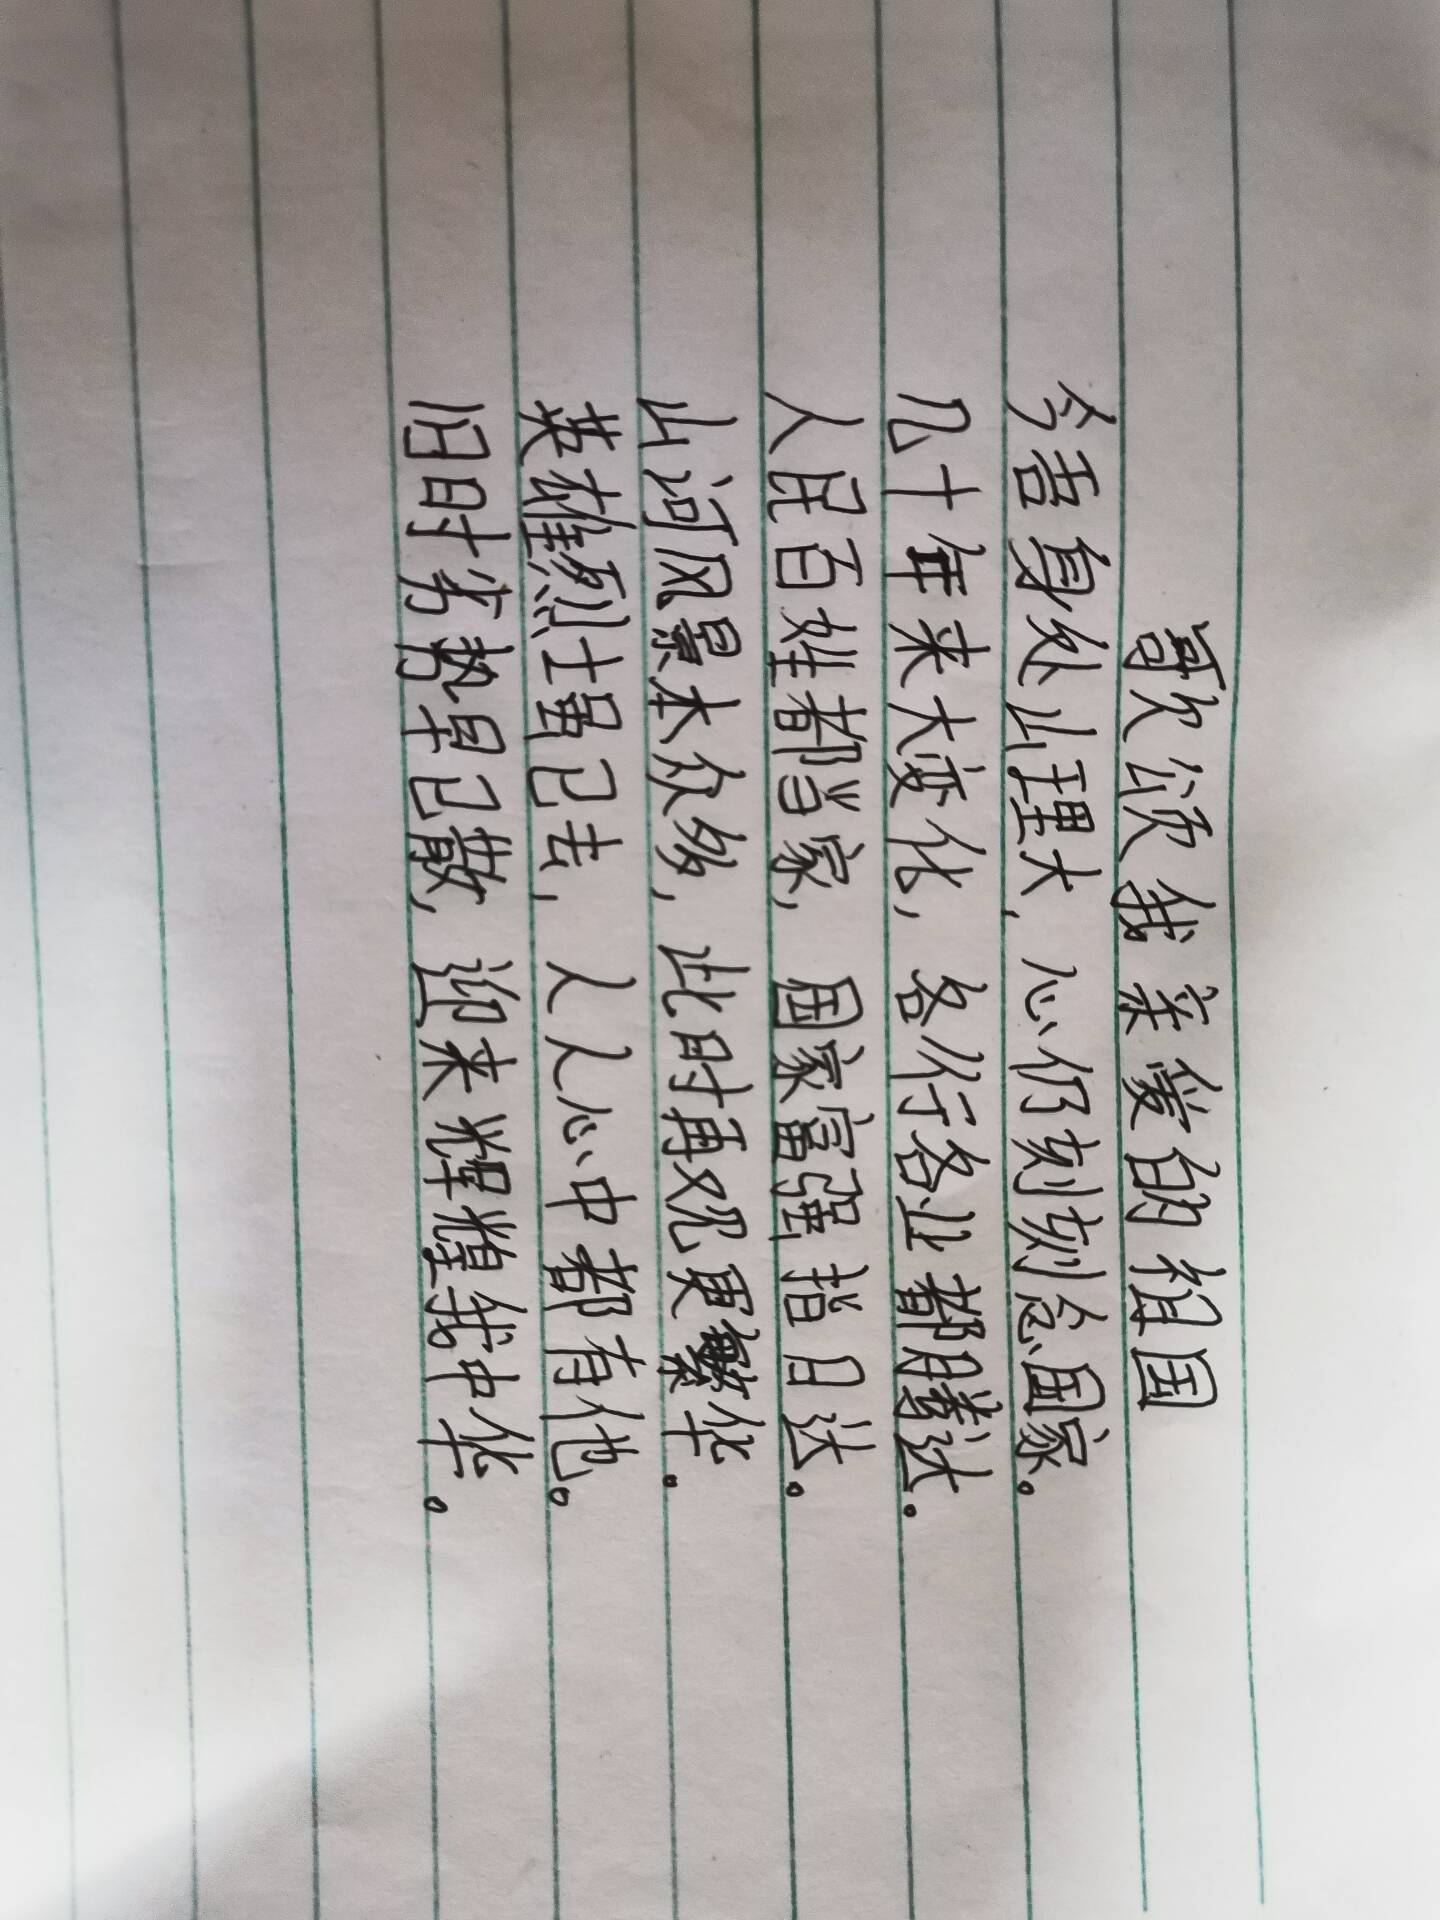 歌颂我亲爱的祖国
今吾身处山理大，心仍刻刻念国家。
几十年来大变化，各行各业都腾达。
人民百姓都当家，国家富强指日达。
山河风景本众多，此时再观更繁华。
英雄烈士虽已去，人人心中都有他。
旧时劣势早已散，迎来辉煌我中华。